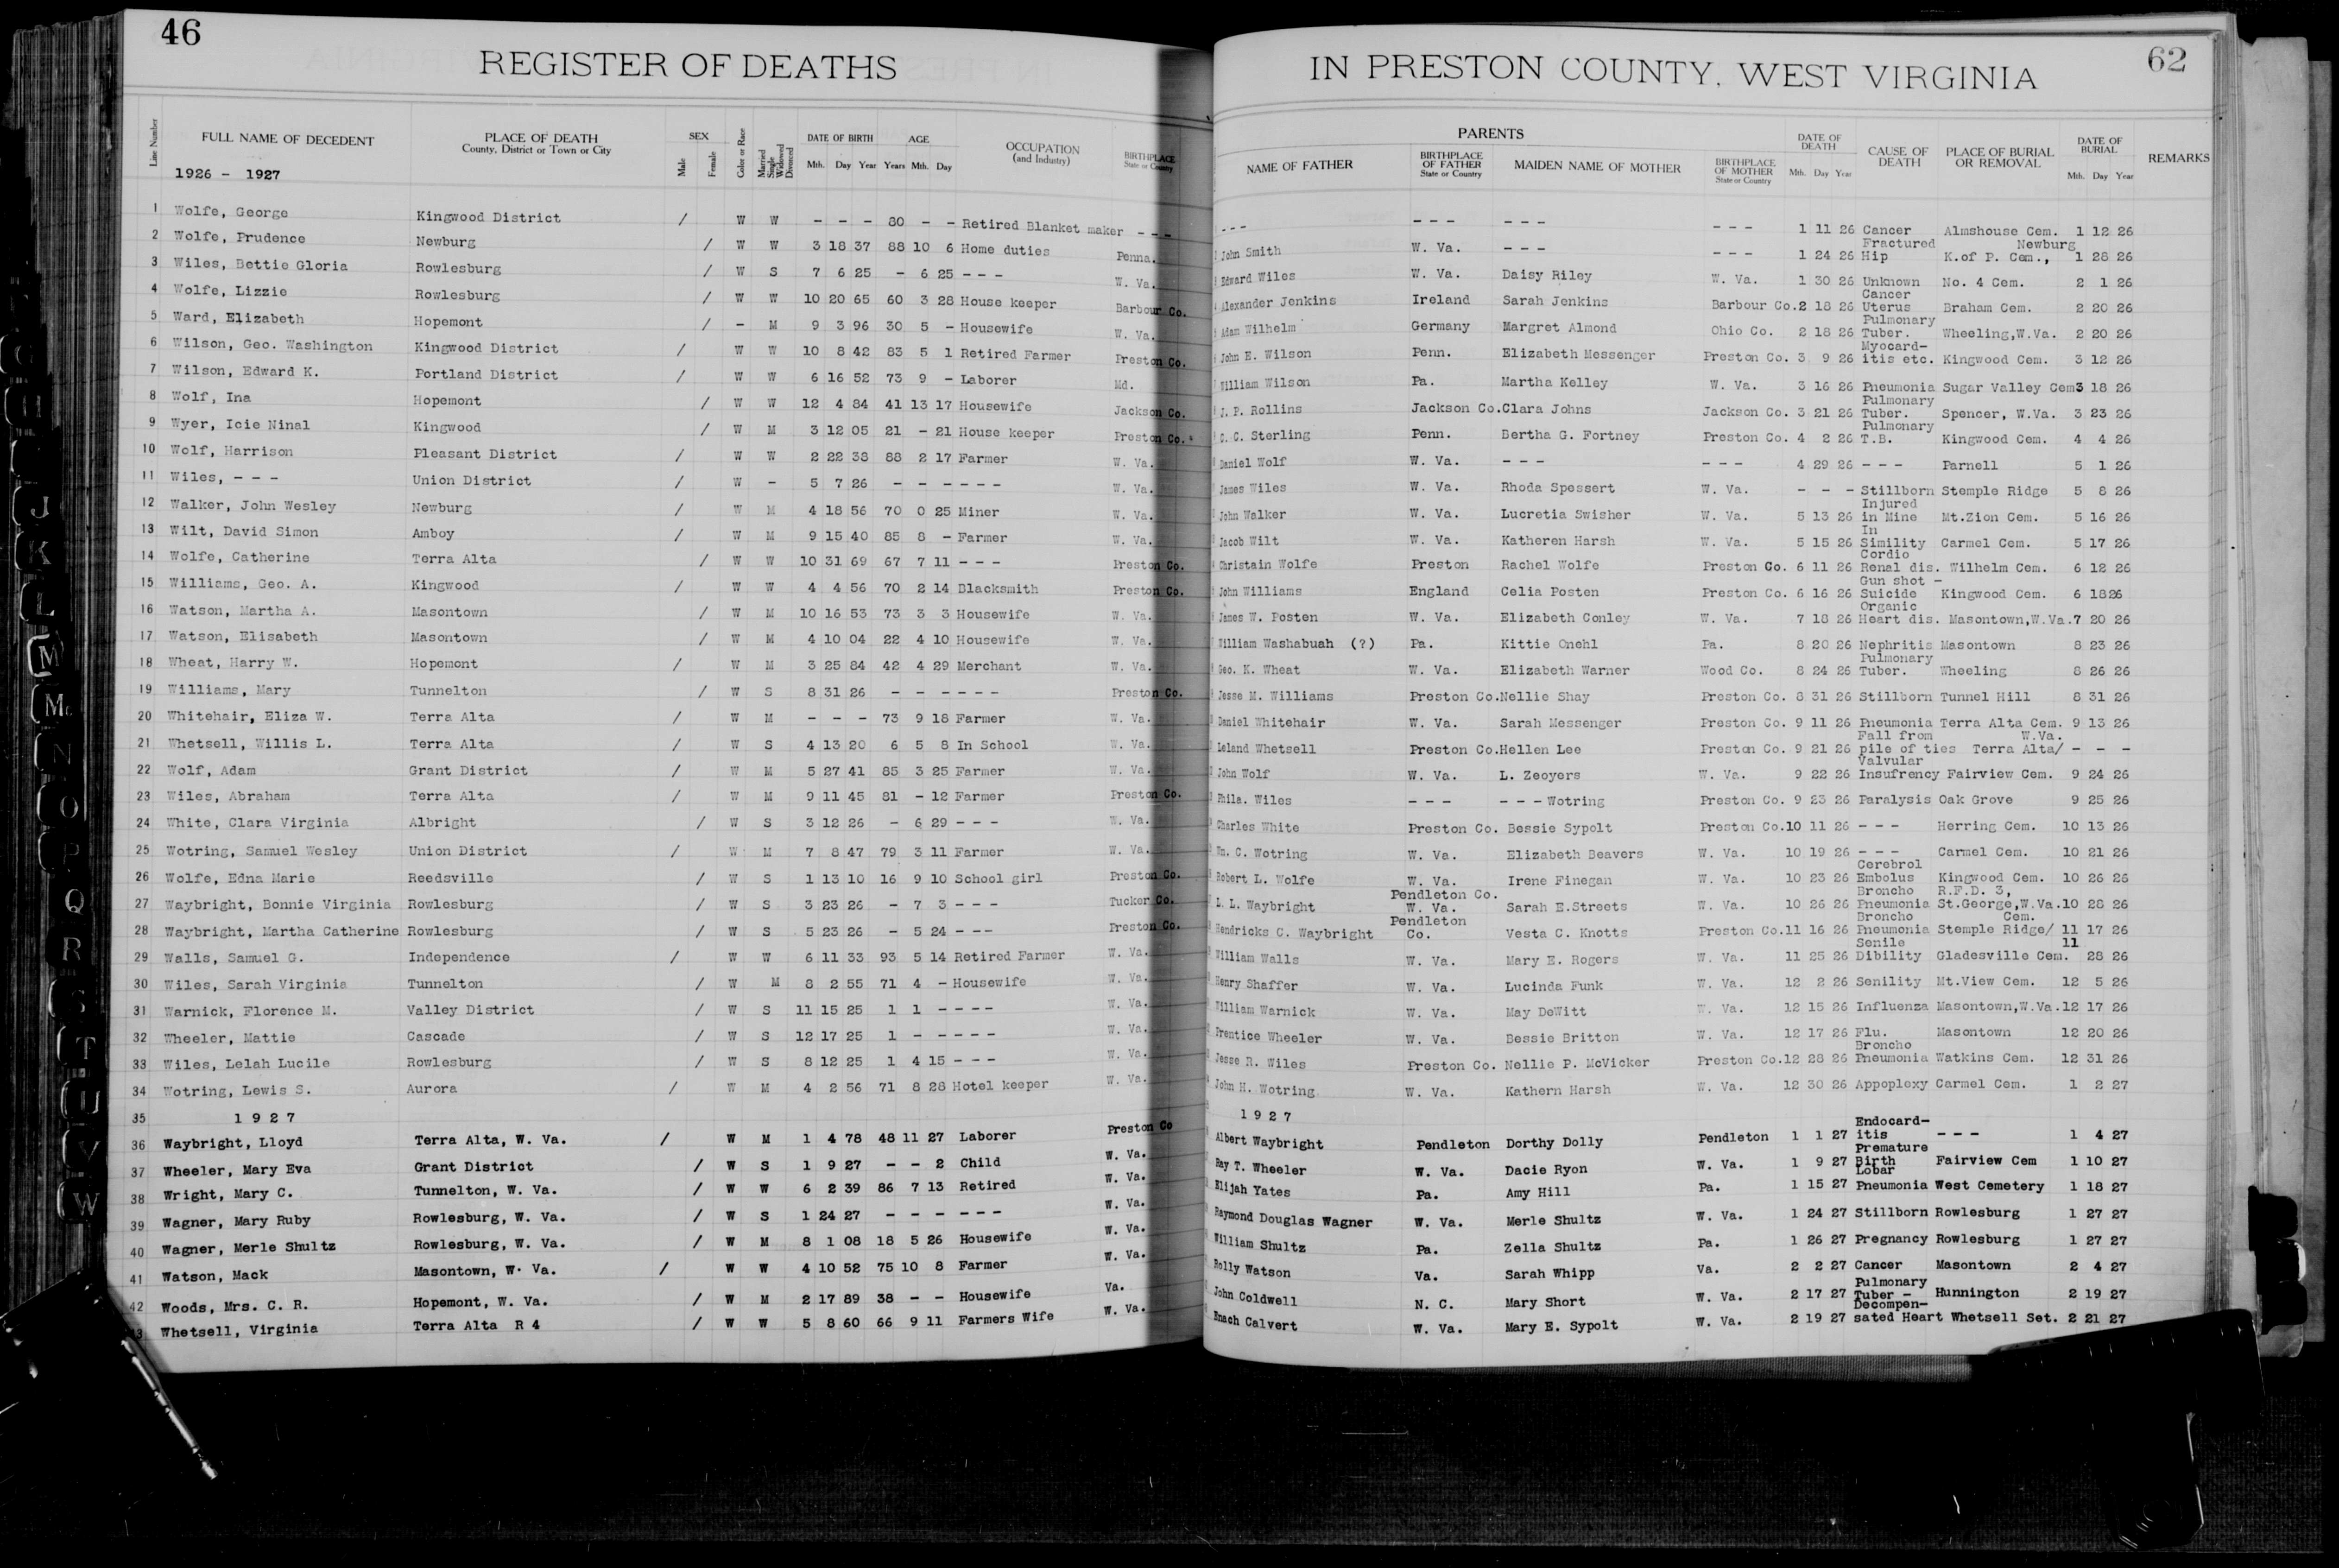 46
REGISTER OF DEATHS
IN PRESTON COUNTY, WEST VIRGINIA
62
Line Number
FULL NAME OF DECEDENT
PLACE OF DEATH
County, District or Town or City
SEX
Male
Female
Color or Race
Married Single Widowed Divorced
DATE OF BIRTH
Mth. Day Year
AGE
Years Mth. Day
OCCUPATION
(and Industry)
BIRTHPLACE
State or Country
PARENTS
NAME OF FATHER
BIRTHPLACE OF FATHER
State or Country
MAIDEN NAME OF MOTHER
BIRTHPLACE OF MOTHER
State or Country
DATE OF DEATH
Mth. Day Year
CAUSE OF DEATH
PLACE OF BURIAL OR REMOVAL
DATE OF BURIAL
Mth. Day Year
REMARKS
1926 - 1927
1 Wolfe, George Kingwood District / W W - - - 80 - - Retired Blanket maker - - - - - - - - - - - - - - - 1 11 26 Cancer Almshouse Cem. 1 12 26
2 Wolfe, Prudence Newburg / W W 3 18 37 88 10 6 Home duties Penna. John Smith W. Va. - - - - - - 1 24 26 Fractured Hip Newburg K.of P. Cem., 1 28 26
3 Wiles, Bettie Gloria Rowlesburg / W S 7 6 25 - 6 25 - - - W. Va. Edward Wiles W. Va. Daisy Riley W. Va. 1 30 26 Unknown No. 4 Cem. 2 1 26
4 Wolfe, Lizzie Rowlesburg / W W 10 20 65 60 3 28 House keeper Barbour Co. Alexander Jenkins Ireland Sarah Jenkins Barbour Co. 2 18 26 Cancer Uterus Braham Cem. 2 20 26
5 Ward, Elizabeth Hopemont / - M 9 3 96 30 5 - Housewife W. Va. Adam Wilhelm Germany Margret Almond Ohio Co. 2 18 26 Pulmonary Tuber. Wheeling,W.Va. 2 20 26
6 Wilson, Geo. Washington Kingwood District / W W 10 8 42 83 5 1 Retired Farmer Preston Co. John E. Wilson Penn. Elizabeth Messenger Preston Co. 3 9 26 Myocard- itis etc. Kingwood Cem. 3 12 26
7 Wilson, Edward K. Portland District / W W 6 16 52 73 9 - Laborer Md. William Wilson Pa. Martha Kelley W. Va. 3 16 26 Pneumonia Sugar Valley Cem 3 18 26
8 Wolf, Ina Hopemont / W W 12 4 84 41 13 17 Housewife Jackson Co. J. P. Rollins Jackson Co. Clara Johns Jackson Co. 3 21 26 Pulmonary Tuber. Spencer, W.Va. 3 23 26
9 Wyer, Icie Ninal Kingwood / W M 3 12 05 21 - 21 House keeper Preston Co. C. C. Sterling Penn. Bertha G. Fortney Preston Co. 4 2 26 Pulmonary T.B. Kingwood Cem. 4 4 26
10 Wolf, Harrison Pleasant District / W W 2 22 38 88 2 17 Farmer W. Va. Daniel Wolf W. Va. - - - - - - 4 29 26 - - - Parnell 5 1 26
11 Wiles, - - - Union District / W - 5 7 26 - - - - - - W. Va. James Wiles W. Va. Rhoda Spessert W. Va. - - - Stillborn Stemple Ridge 5 8 26
12 Walker, John Wesley Newburg / W M 4 18 56 70 0 25 Miner W. Va. John Walker W. Va. Lucretia Swisher W. Va. 5 13 26 Injured in Mine Mt.Zion Cem. 5 16 26
13 Wilt, David Simon Amboy / W M 9 15 40 85 8 - Farmer W. Va. Jacob Wilt W. Va. Katheren Harsh W. Va. 5 15 26 In Simility Carmel Cem. 5 17 26
14 Wolfe, Catherine Terra Alta / W W 10 31 69 67 7 11 - - - Preston Co. Christain Wolfe Preston Rachel Wolfe Preston Co. 6 11 26 Cordio Renal dis. Wilhelm Cem. 6 12 26
15 Williams, Geo. A. Kingwood / W W 4 4 56 70 2 14 Blacksmith Preston Co. John Williams England Celia Posten Preston Co. 6 16 26 Gun shot - Suicide Kingwood Cem. 6 1826
16 Watson, Martha A. Masontown / W M 10 16 53 73 3 3 Housewife W. Va. James W. Posten W. Va. Elizabeth Conley W. Va. 7 18 26 Organic Heart dis. Masontown,W.Va. 7 20 26
17 Watson, Elisabeth Masontown / W M 4 10 04 22 4 10 Housewife W. Va. William Washabuah (?) Pa. Kittie Onehl Pa. 8 20 26 Nephritis Masontown 8 23 26
18 Wheat, Harry W. Hopemont / W M 3 25 84 42 4 29 Merchant W. Va. Geo. K. Wheat W. Va. Elizabeth Warner Wood Co. 8 24 26 Pulmonary Tuber. Wheeling 8 26 26
19 Williams, Mary Tunnelton / W S 8 31 26 - - - - - - Preston Co. Jesse M. Williams Preston Co. Nellie Shay Preston Co. 8 31 26 Stillborn Tunnel Hill 8 31 26
20 Whitehair, Eliza W. Terra Alta / W M - - - 73 9 18 Farmer W. Va. Daniel Whitehair W. Va. Sarah Messenger Preston Co. 9 11 26 Pneumonia Terra Alta Cem. 9 13 26
21 Whetsell, Willis L. Terra Alta / W S 4 13 20 6 5 8 In School W. Va. Leland Whetsell Preston Co. Hellen Lee Preston Co. 9 21 26 Fall from pile of ties W.Va. Terra Alta/ - - -
22 Wolf, Adam Grant District / W M 5 27 41 85 3 25 Farmer W. Va. John Wolf W. Va. L. Zeoyers W. Va. 9 22 26 Valvular Insufrency Fairview Cem. 9 24 26
23 Wiles, Abraham Terra Alta / W M 9 11 45 81 - 12 Farmer Preston Co. Phila. Wiles - - - - - - Wotring Preston Co. 9 23 26 Paralysis Oak Grove 9 25 26
24 White, Clara Virginia Albright / W S 3 12 26 - 6 29 - - - W. Va. Charles White Preston Co. Bessie Sypolt Preston Co. 10 11 26 - - - Herring Cem. 10 13 26
25 Wotring, Samuel Wesley Union District / W M 7 8 47 79 3 11 Farmer W. Va. Wm. C. Wotring W. Va. Elizabeth Beavers W. Va. 10 19 26 - - - Carmel Cem. 10 21 26
26 Wolfe, Edna Marie Reedsville / W S 1 13 10 16 9 10 School girl Preston Co. Robert L. Wolfe W. Va. Irene Finegan W. Va. 10 23 26 Cerebrol Embolus Kingwood Cem. 10 26 26
27 Waybright, Bonnie Virginia Rowlesburg / W S 3 23 26 - 7 3 - - - Tucker Co. L. L. Waybright Pendleton Co. W. Va. Sarah E.Streets W. Va. 10 26 26 Broncho Pneumonia R.F.D. 3, St.George,W.Va. 10 28 26
28 Waybright, Martha Catherine Rowlesburg / W S 5 23 26 - 5 24 - - - Preston Co. Hendricks C. Waybright Pendleton Co. Vesta C. Knotts Preston Co. 11 16 26 Broncho Pneumonia Cem. Stemple Ridge/ 11 17 26
29 Walls, Samuel G. Independence / W W 6 11 33 93 5 14 Retired Farmer W. Va. William Walls W. Va. Mary E. Rogers W. Va. 11 25 26 Senile Dibility Gladesville Cem. 11 28 26
30 Wiles, Sarah Virginia Tunnelton / W M 8 2 55 71 4 - Housewife W. Va. Henry Shaffer W. Va. Lucinda Funk W. Va. 12 2 26 Senility Mt.View Cem. 12 5 26
31 Warnick, Florence M. Valley District / W S 11 15 25 1 1 - - - - W. Va. William Warnick W. Va. May DeWitt W. Va. 12 15 26 Influenza Masontown,W.Va. 12 17 26
32 Wheeler, Mattie Cascade / W S 12 17 25 1 - - - - - W. Va. Prentice Wheeler W. Va. Bessie Britton W. Va. 12 17 26 Flu. Masontown 12 20 26
33 Wiles, Lelah Lucile Rowlesburg / W S 8 12 25 1 4 15 - - - W. Va. Jesse R. Wiles Preston Co. Nellie P. McVicker Preston Co. 12 28 26 Broncho Pneumonia Watkins Cem. 12 31 26
34 Wotring, Lewis S. Aurora / W M 4 2 56 71 8 28 Hotel keeper W. Va. John H. Wotring W. Va. Kathern Harsh W. Va. 12 30 26 Appoplexy Carmel Cem. 1 2 27
35 1 9 2 7 1 9 2 7
36 Waybright, Lloyd Terra Alta, W. Va. / W M 1 4 78 48 11 27 Laborer Preston Co Albert Waybright Pendleton Dorthy Dolly Pendleton 1 1 27 Endocard- itis - - - 1 4 27
37 Wheeler, Mary Eva Grant District / W S 1 9 27 - - 2 Child W. Va. Ray T. Wheeler W. Va. Dacie Ryon W. Va. 1 9 27 Premature Birth Fairview Cem 1 10 27
38 Wright, Mary C. Tunnelton, W. Va. / W W 6 2 39 86 7 13 Retired W. Va. Elijah Yates Pa. Amy Hill Pa. 1 15 27 Lobar Pneumonia West Cemetery 1 18 27
39 Wagner, Mary Ruby Rowlesburg, W. Va. / W S 1 24 27 - - - - - - W. Va. Raymond Douglas Wagner W. Va. Merle Shultz W. Va. 1 24 27 Stillborn Rowlesburg 1 27 27
40 Wagner, Merle Shultz Rowlesburg, W. Va. / W M 8 1 08 18 5 26 Housewife W. Va. William Shultz Pa. Zella Shultz Pa. 1 26 27 Pregnancy Rowlesburg 1 27 27
41 Watson, Mack Masontown, W. Va. / W W 4 10 52 75 10 8 Farmer W. Va. Rolly Watson Va. Sarah Whipp Va. 2 2 27 Cancer Masontown 2 4 27
42 Woods, Mrs. C. R. Hopemont, W. Va. / W M 2 17 89 38 - - Housewife Va. John Coldwell N. C. Mary Short W. Va. 2 17 27 Pulmonary Tuber - Hunnington 2 19 27
43 Whetsell, Virginia Terra Alta R 4 / W W 5 8 60 66 9 11 Farmers Wife W. Va. Enach Calvert W. Va. Mary E. Sypolt W. Va. 2 19 27 Decompen- sated Heart Whetsell Set. 2 21 27
J
K
L
M
Mc
N
O
P
Q
R
S
T
U
V
W